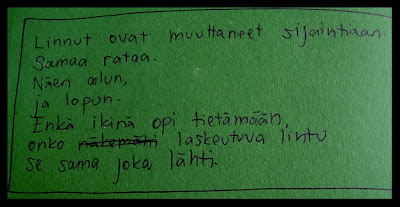 Linnut ovat muuttaneet sijaintiaan.
Samaa rataa.
Näen alun,
ja lopun.
Enkä ikinä opi tietämään,
onko näkemäni laskeutuva lintu
se sama joka lähti.